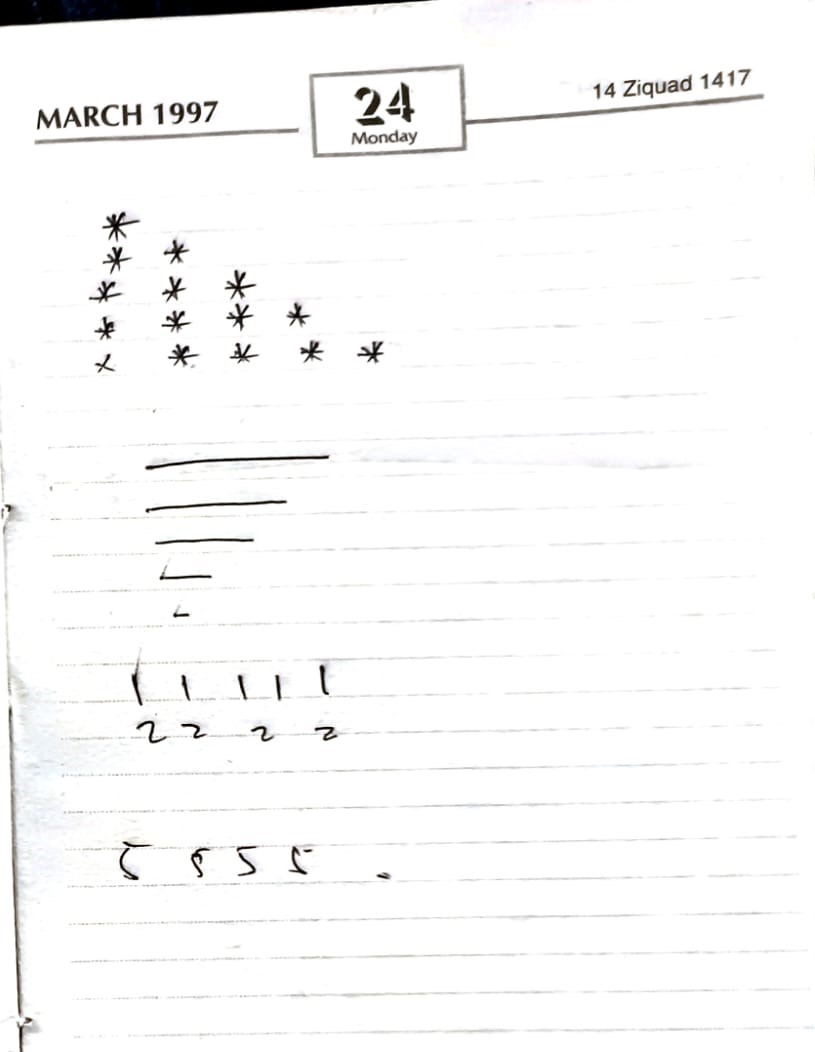 MARCH 1997
24
Monday
14 Ziquad 1417
*
* *
* * *
* * * *
* * * * *
1 1 1 1 1
2 2 2 2
5 5 5 5 .